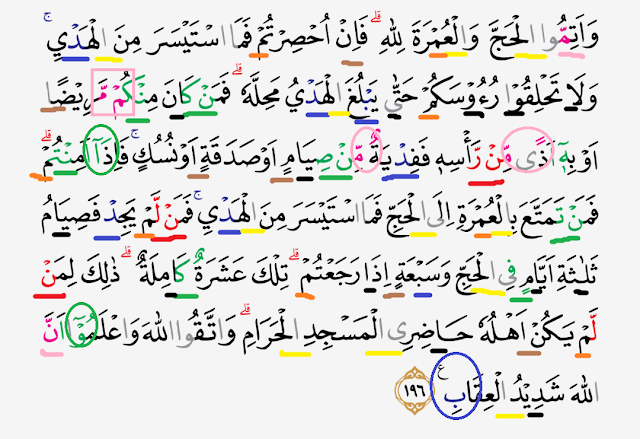 وَاَتِمُّوا الْحَجَّ وَالْعُمْرَةَ لِلّٰهِ ۗ فَاِنْ اُحْصِرْتُمْ فَمَا اسْتَيْسَرَ مِنَ الْهَدْيِ ۚ
وَلَا تَحْلِقُوْا رُءُوْسَكُمْ حَتّٰى يَبْلُغَ الْهَدْيُ مَحِلَّهٗ ۗ فَمَنْ كَانَ مِنْكُمْ مَّرِيْضًا
اَوْ بِهٖٓ اَذًى مِّنْ رَّأْسِهٖ فَفِدْيَةٌ مِّنْ صِيَامٍ اَوْ صَدَقَةٍ اَوْ نُسُكٍ ۚ فَاِذَآ اَمِنْتُمْ ۗ
فَمَنْ تَمَتَّعَ بِالْعُمْرَةِ اِلَى الْحَجِّ فَمَا اسْتَيْسَرَ مِنَ الْهَدْيِ ۚ فَمَنْ لَّمْ يَجِدْ فَصِيَامُ
ثَلٰثَةِ اَيَّامٍ فِى الْحَجِّ وَسَبْعَةٍ اِذَا رَجَعْتُمْ ۗ تِلْكَ عَشَرَةٌ كَامِلَةٌ ۗ ذٰلِكَ لِمَنْ
لَّمْ يَكُنْ اَهْلُهٗ حَاضِرِى الْمَسْجِدِ الْحَرَامِ ۗ وَاتَّقُوا اللّٰهَ وَاعْلَمُوْٓا اَنَّ
اللّٰهَ شَدِيْدُ الْعِقَابِ ع ١٩٦